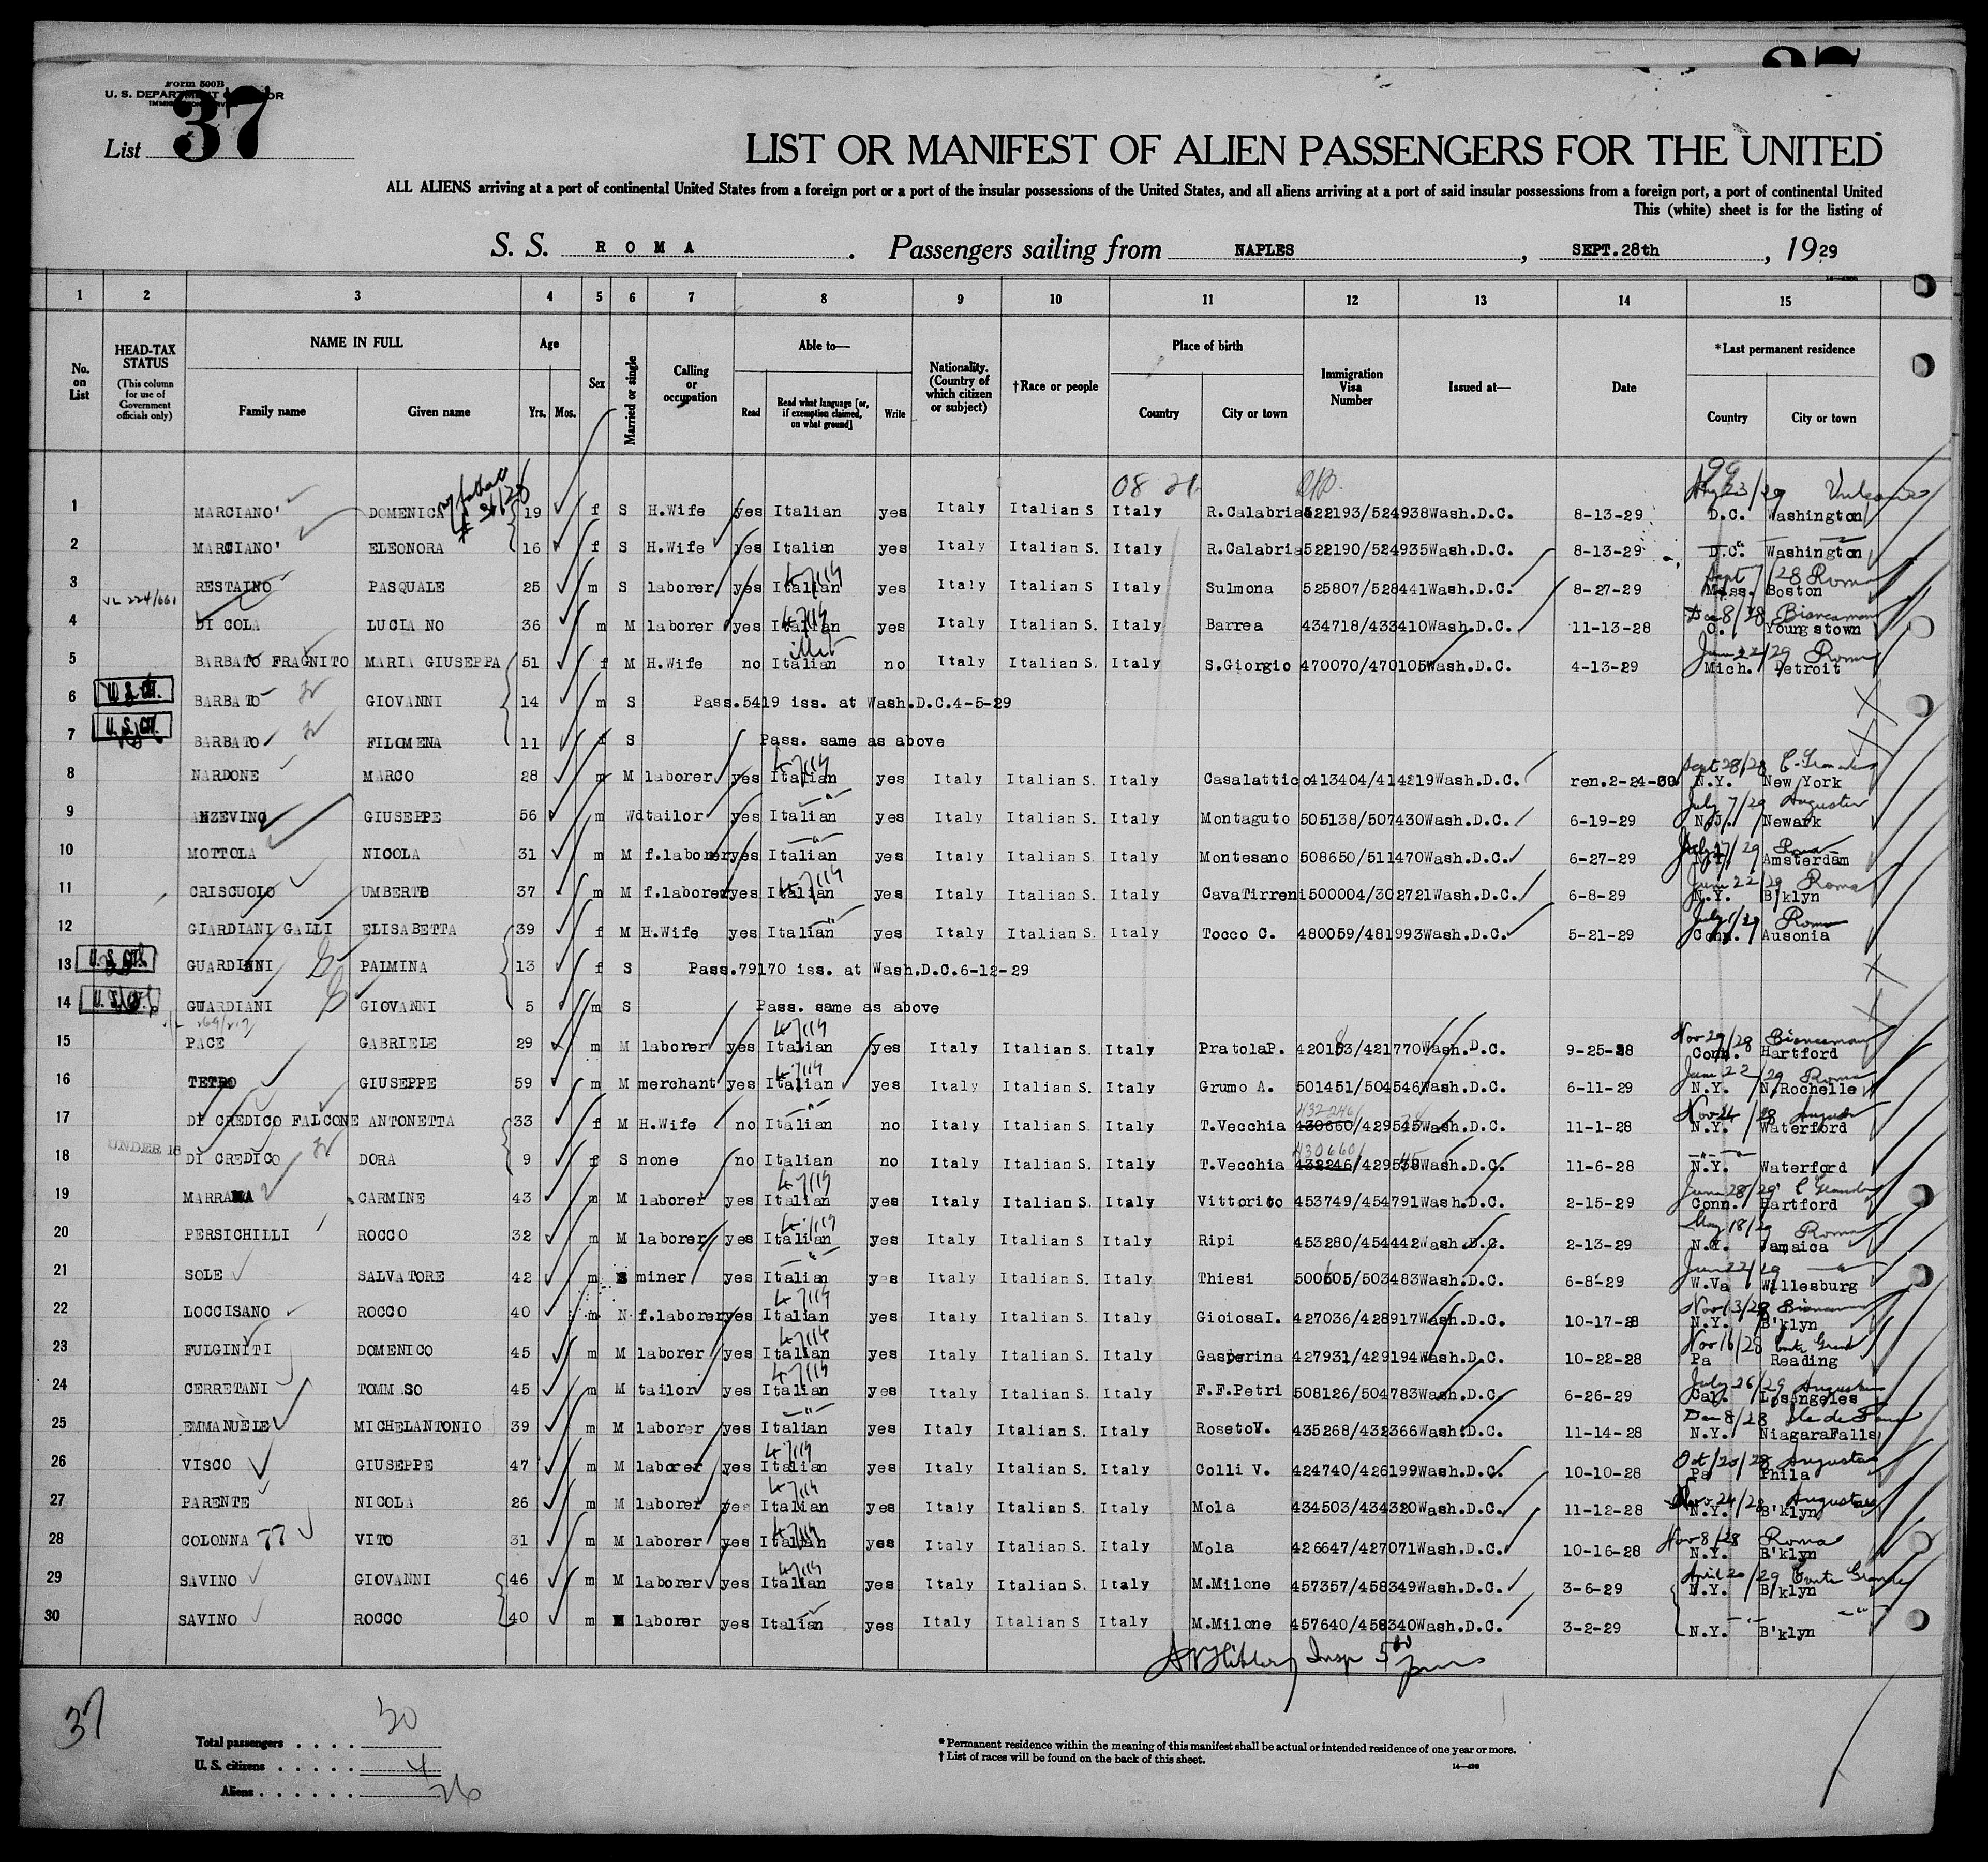 Form 500B
U. S. DEPARTMENT OF LABOR
List 37
LIST OR MANIFEST OF ALIEN PASSENGERS FOR THE UNITED
ALL ALIENS arriving at a port of continental United States from a foreign port or a port of the insular possessions of the United States, and all aliens arriving at a port of said insular possessions from a foreign port, a port of continental United
This (white) sheet is for the listing of
S. S. ROMA. Passengers sailing from NAPLES, SEPT.28th, 1929
1 2 3 4 5 6 7 8 9 10 11 12 13 14 15
No. on List
HEAD-TAX STATUS (This column for use of Government officials only)
NAME IN FULL Family name Given name
Age Yrs. Mos.
Sex
Married or single
Calling or occupation
Able to— Read Read what language [or, if exemption claimed, on what ground] Write
Nationality. (Country of which citizen or subject)
†Race or people
Place of birth Country City or town
Immigration Visa Number
Issued at—
Date
*Last permanent residence Country City or town
08 21 99
Aug 23/29 Vulcania
1 MARCIANO' DOMENICA 19 f S H.Wife yes Italian yes Italy Italian S Italy R.Calabria 522193/524938 Wash.D.C. 8-13-29 D.C. Washington
2 MARCIANO' ELEONORA 16 f S H.Wife yes Italian yes Italy Italian S. Italy R.Calabria 522190/524935 Wash.D.C. 8-13-29 D.C. Washington
Sept 7/28 Roma
3 RESTAINO PASQUALE 25 m S laborer yes Italian yes Italy Italian S Italy Sulmona 525807/528441 Wash.D.C. 8-27-29 Mass. Boston
VL 224/661
Dec 8/28 Biancamano
4 DI COLA LUCIA NO 36 m M laborer yes Italian yes Italy Italian S. Italy Barrea 434718/433410 Wash.D.C. 11-13-28 O. Youngstown
June 22/29 Roma
5 BARBATO FRAGNITO MARIA GIUSEPPA 51 f M H.Wife no Italian no Italy Italian S. Italy S.Giorgio 470070/470105 Wash.D.C. 4-13-29 Mich. Detroit
6 U.S. CIT. BARBATO GIOVANNI 14 m S Pass.5419 iss. at Wash.D.C.4-5-29
7 U.S. CIT. BARBATO FILOMENA 11 f S Pass. same as above
Sept 28/28
8 NARDONE MARCO 28 m M laborer yes Italian yes Italy Italian S Italy Casalattico 413404/414819 Wash.D.C. ren.2-24-30 N.Y. New York
July 7/29 Augustus
9 ANZEVINO GIUSEPPE 56 m Wd tailor yes Italian yes Italy Italian S. Italy Montaguto 505138/507430 Wash.D.C. 6-19-29 N.J. Newark
July 27/29 Roma
10 MOTTOLA NICOLA 31 m M f.laborer yes Italian yes Italy Italian S. Italy Montesano 508650/511470 Wash.D.C. 6-27-29 N.Y. Amsterdam
June 22/29 Roma
11 CRISCUOLO UMBERTO 37 m M f.laborer yes Italian yes Italy Italian S. Italy CavaTirreni 500004/302721 Wash.D.C. 6-8-29 N.Y. B'klyn
July 1/29 Roma
12 GIARDIANI GALLI ELISABETTA 39 f M H.Wife yes Italian yes Italy Italian S. Italy Tocco C. 480059/481993 Wash.D.C. 5-21-29 Conn. Ausonia
13 U.S. CIT. GUARDIANI PALMINA 13 f S Pass.79170 iss. at Wash.D.C.6-12-29
14 U.S. CIT. GUARDIANI GIOVANNI 5 m S Pass. same as above
Nov 29/28 Biancamano
15 PACE GABRIELE 29 m M laborer yes Italian yes Italy Italian S. Italy PratolaP. 420183/421770 Wash.D.C. 9-25-28 Conn. Hartford
June 22/29 Roma
16 TETRO GIUSEPPE 59 m M merchant yes Italian yes Italy Italian S. Italy Grumo A. 501451/504546 Wash.D.C. 6-11-29 N.Y. N.Rochelle
432246 Nov 24/28 Augustus
17 DI CREDICO FALCONE ANTONETTA 33 f M H.Wife no Italian no Italy Italian S. Italy T.Vecchia 430660/429545 Wash.D.C. 11-1-28 N.Y. Waterford
UNDER 16
430660
18 DI CREDICO DORA 9 f S none no Italian no Italy Italian S. Italy T.Vecchia 432246/429538 Wash.D.C. 11-6-28 N.Y. Waterford
June 28/29 C Grande
19 MARRAMA CARMINE 43 m M laborer yes Italian yes Italy Italian S. Italy Vittorito 453749/454791 Wash.D.C. 2-15-29 Conn. Hartford
May 18/29 Roma
20 PERSICHILLI ROCCO 32 m M laborer yes Italian yes Italy Italian S Italy Ripi 453280/454442 Wash.D.C. 2-13-29 N.Y. Jamaica
June 22/29
21 SOLE SALVATORE 42 m S miner yes Italian yes Italy Italian S. Italy Thiesi 500605/503483 Wash.D.C. 6-8-29 W.Va Willesburg
Nov 13/28 Biancamano
22 LOCCISANO ROCCO 40 m N f.laborer yes Italian yes Italy Italian S. Italy GioiosaI. 427036/428917 Wash.D.C. 10-17-28 N.Y. B'klyn
Nov 16/28 Conte Grande
23 FULGINITI DOMENICO 45 m M laborer yes Italian yes Italy Italian S. Italy Gasperina 427931/429194 Wash.D.C. 10-22-28 Pa Reading
July 26/29 Augustus
24 CERRETANI TOMMASO 45 m M tailor yes Italian yes Italy Italian S. Italy F.F.Petri 508126/504783 Wash.D.C. 6-26-29 Cal. LosAngeles
Dec 8/28 Ile de France
25 EMMANUELE MICHELANTONIO 39 m M laborer yes Italian yes Italy Italian S. Italy RosetoV. 435268/432366 Wash.D.C. 11-14-28 N.Y. NiagaraFalls
Oct/20/28 Augustus
26 VISCO GIUSEPPE 47 m M laborer yes Italian yes Italy Italian S. Italy Colli V. 424740/426199 Wash.D.C. 10-10-28 Pa Phila
Nov 24/28 Augustus
27 PARENTE NICOLA 26 m M laborer yes Italian yes Italy Italian S. Italy Mola 434503/434320 Wash.D.C. 11-12-28 N.Y. B'klyn
Nov 8/28 Roma
28 COLONNA VITO 31 m M laborer yes Italian yes Italy Italian S. Italy Mola 426647/427071 Wash.D.C. 10-16-28 N.Y. B'klyn
April 20/29 Conte Grande
29 SAVINO GIOVANNI 46 m M laborer yes Italian yes Italy Italian S. Italy M.Milone 457357/458349 Wash.D.C. 3-6-29 N.Y. B'klyn
30 SAVINO ROCCO 40 m M laborer yes Italian yes Italy Italian S Italy M.Milone 457640/458340 Wash.D.C. 3-2-29 N.Y. B'klyn
Insp
37
Total passengers 30
U. S. citizens 4
Aliens 26
* Permanent residence within the meaning of this manifest shall be actual or intended residence of one year or more.
† List of races will be found on the back of this sheet.